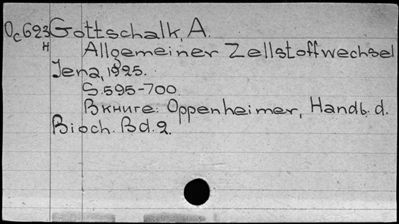 Oc623 Gottschalk, A.
H Allgemeiner Zellstoffwechsel
Jena, 1925.
S. 595-700.
В книге: Oppenheimer, Handb. d.
Bioch. Bd. 2.